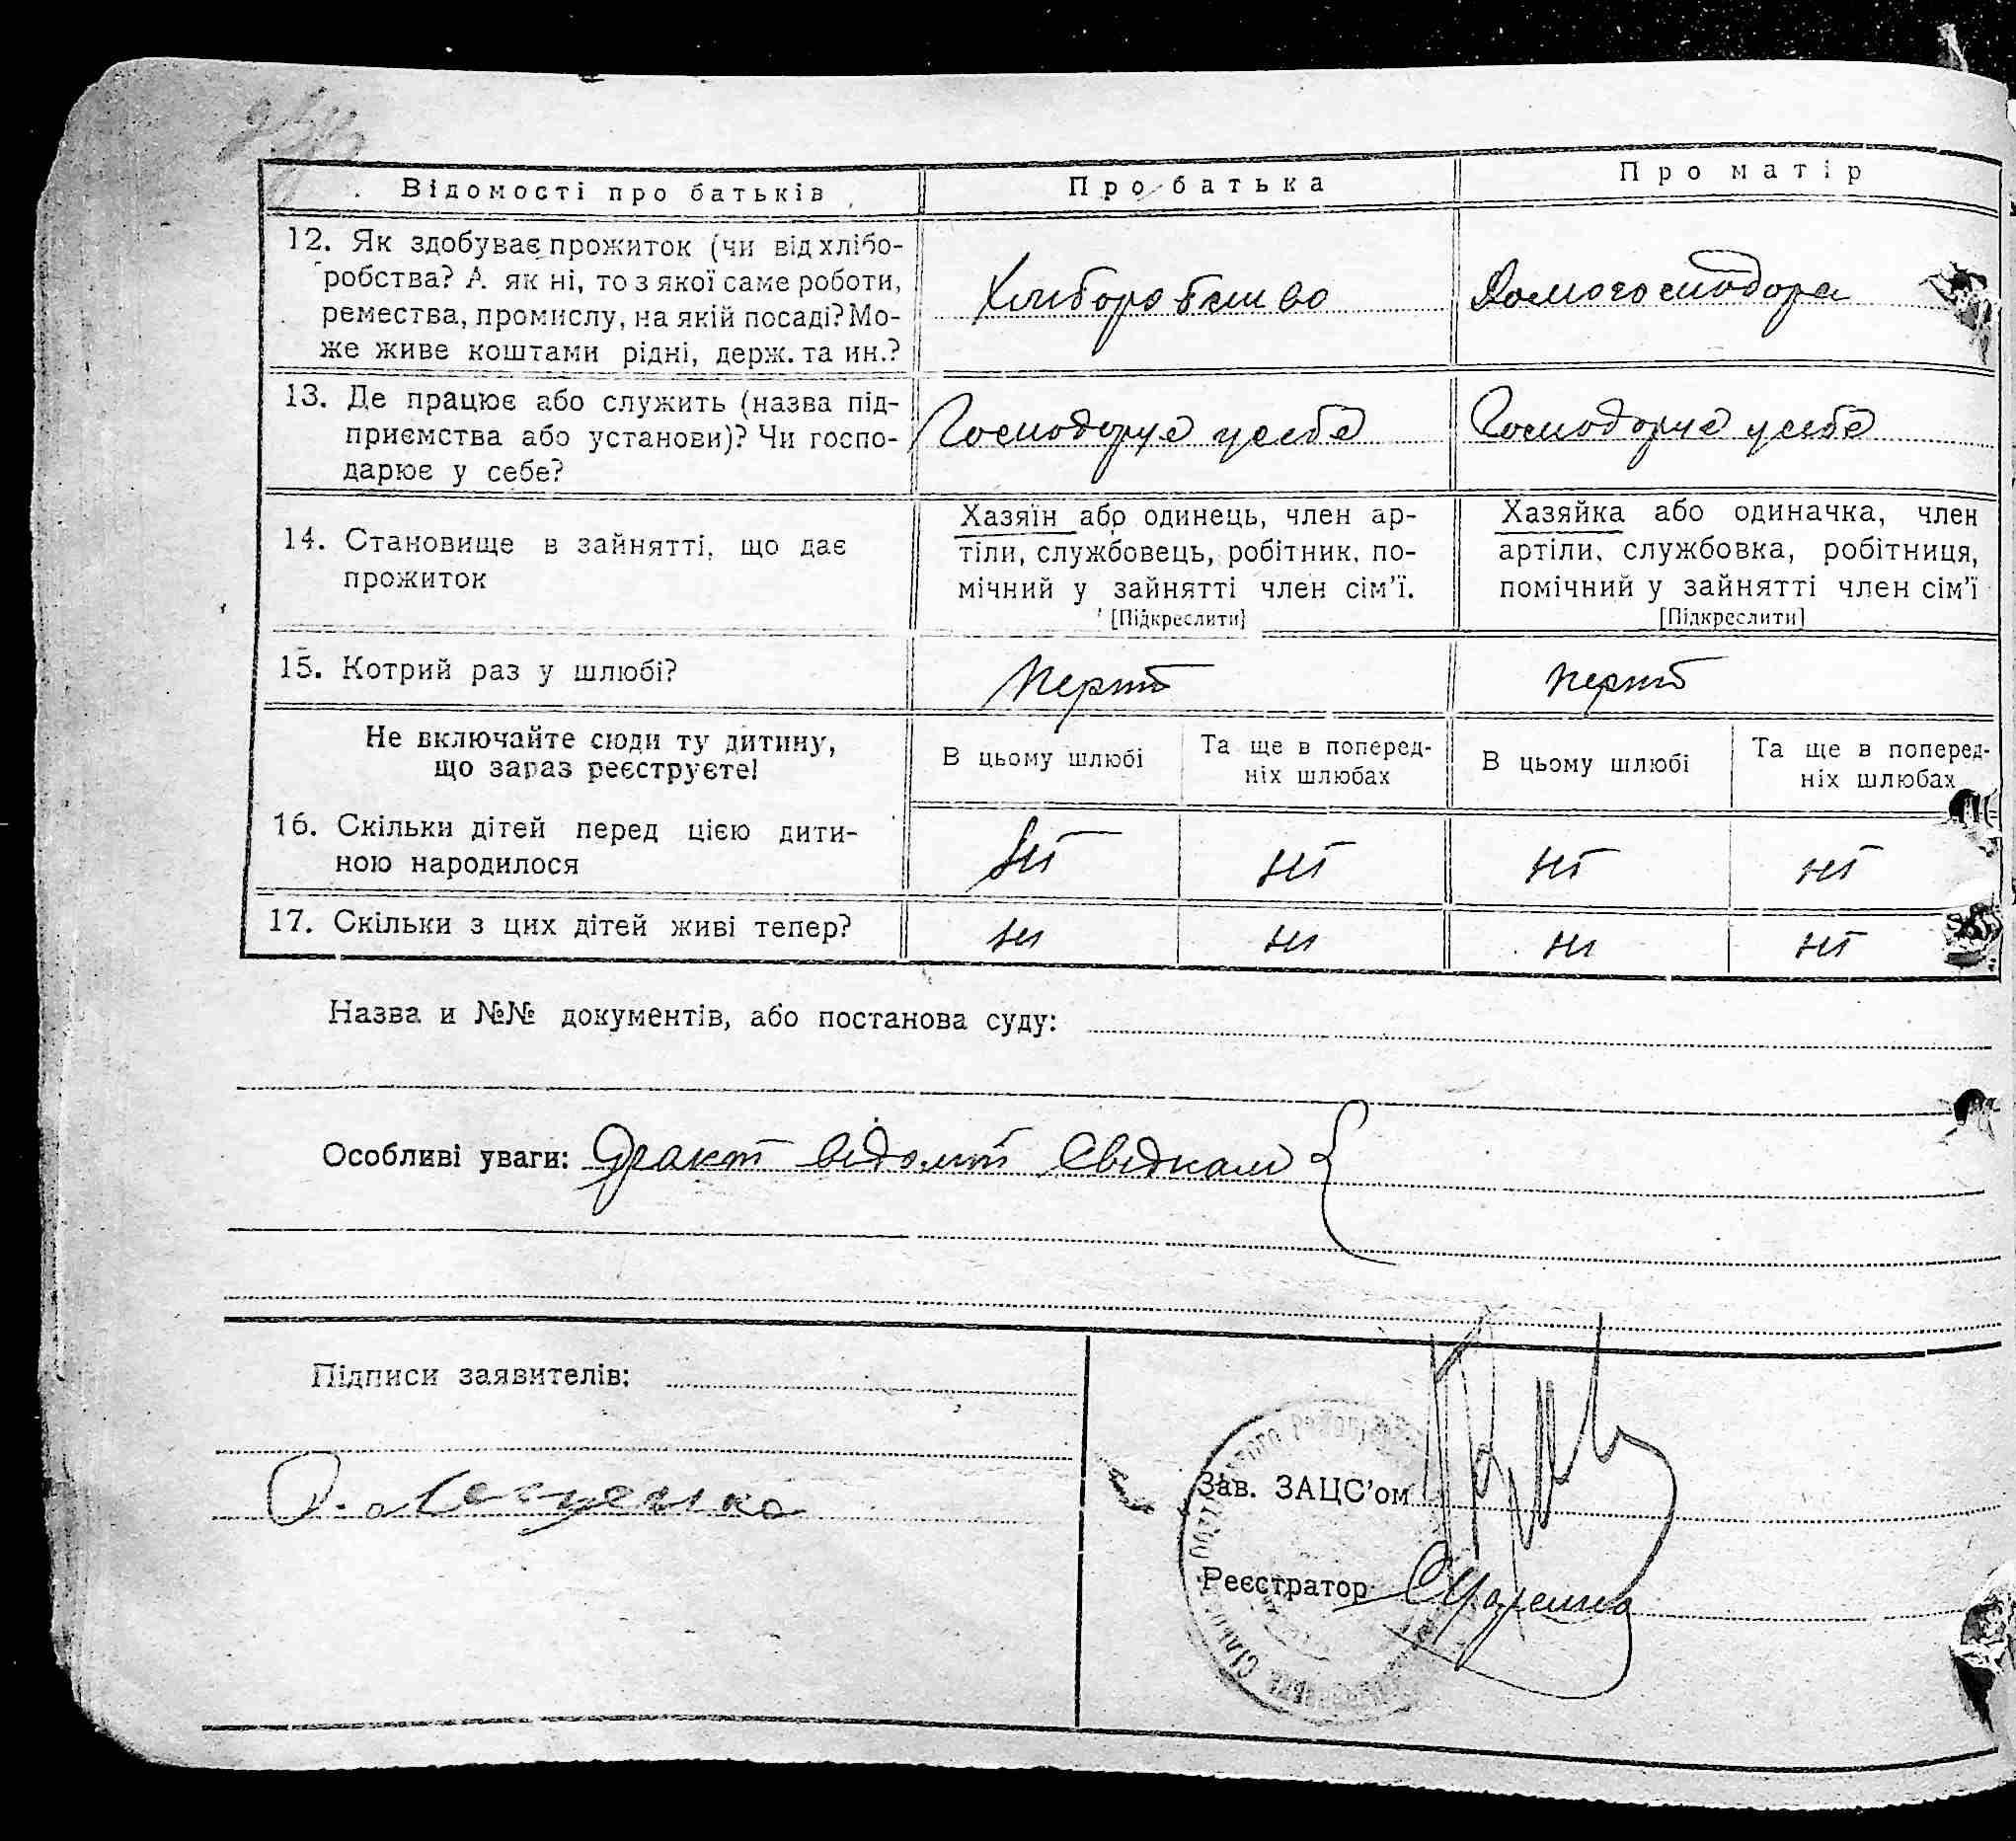 Відомості про батьків
Про батька
Про матір
12. Як здобуває прожиток (чи від хлібо-
робства? А як ні, то з якої саме роботи,
ремества, промислу, на якій посаді? Мо-
же живе коштами рідні, держ. та ин.?
Хлиборобство
Домогосподорка
13. Де працює або служить (назва під-
приємства або установи)? Чи госпо-
дарює у себе?
Господорує у себе
Господорує у себе
14. Становище в зайнятті, що дає
прожиток
Хазяїн або одинець, член ар-
тіли, службовець, робітник, по-
мічний у зайнятті член сім'ї.
[Підкреслити]
Хазяйка або одиначка, член
артіли, службовка, робітниця,
помічний у зайнятті член сім'ї
[Підкреслити]
15. Котрий раз у шлюбі?
Перший
перший
Не включайте сюди ту дитину,
що зараз реєструєте!
В цьому шлюбі
Та ще в поперед-
ніх шлюбах
В цьому шлюбі
Та ще в поперед-
ніх шлюбах
16. Скільки дітей перед цією дити-
ною народилося
ні
ні
ні
ні
17. Скільки з цих дітей живі тепер?
ні
ні
ні
ні
Назва и №№ документів, або постанова суду:
Особливі уваги: Факт відомий Свідкам {
Підписи заявителів:
Зав. ЗАЦС'ом
Реєстратор